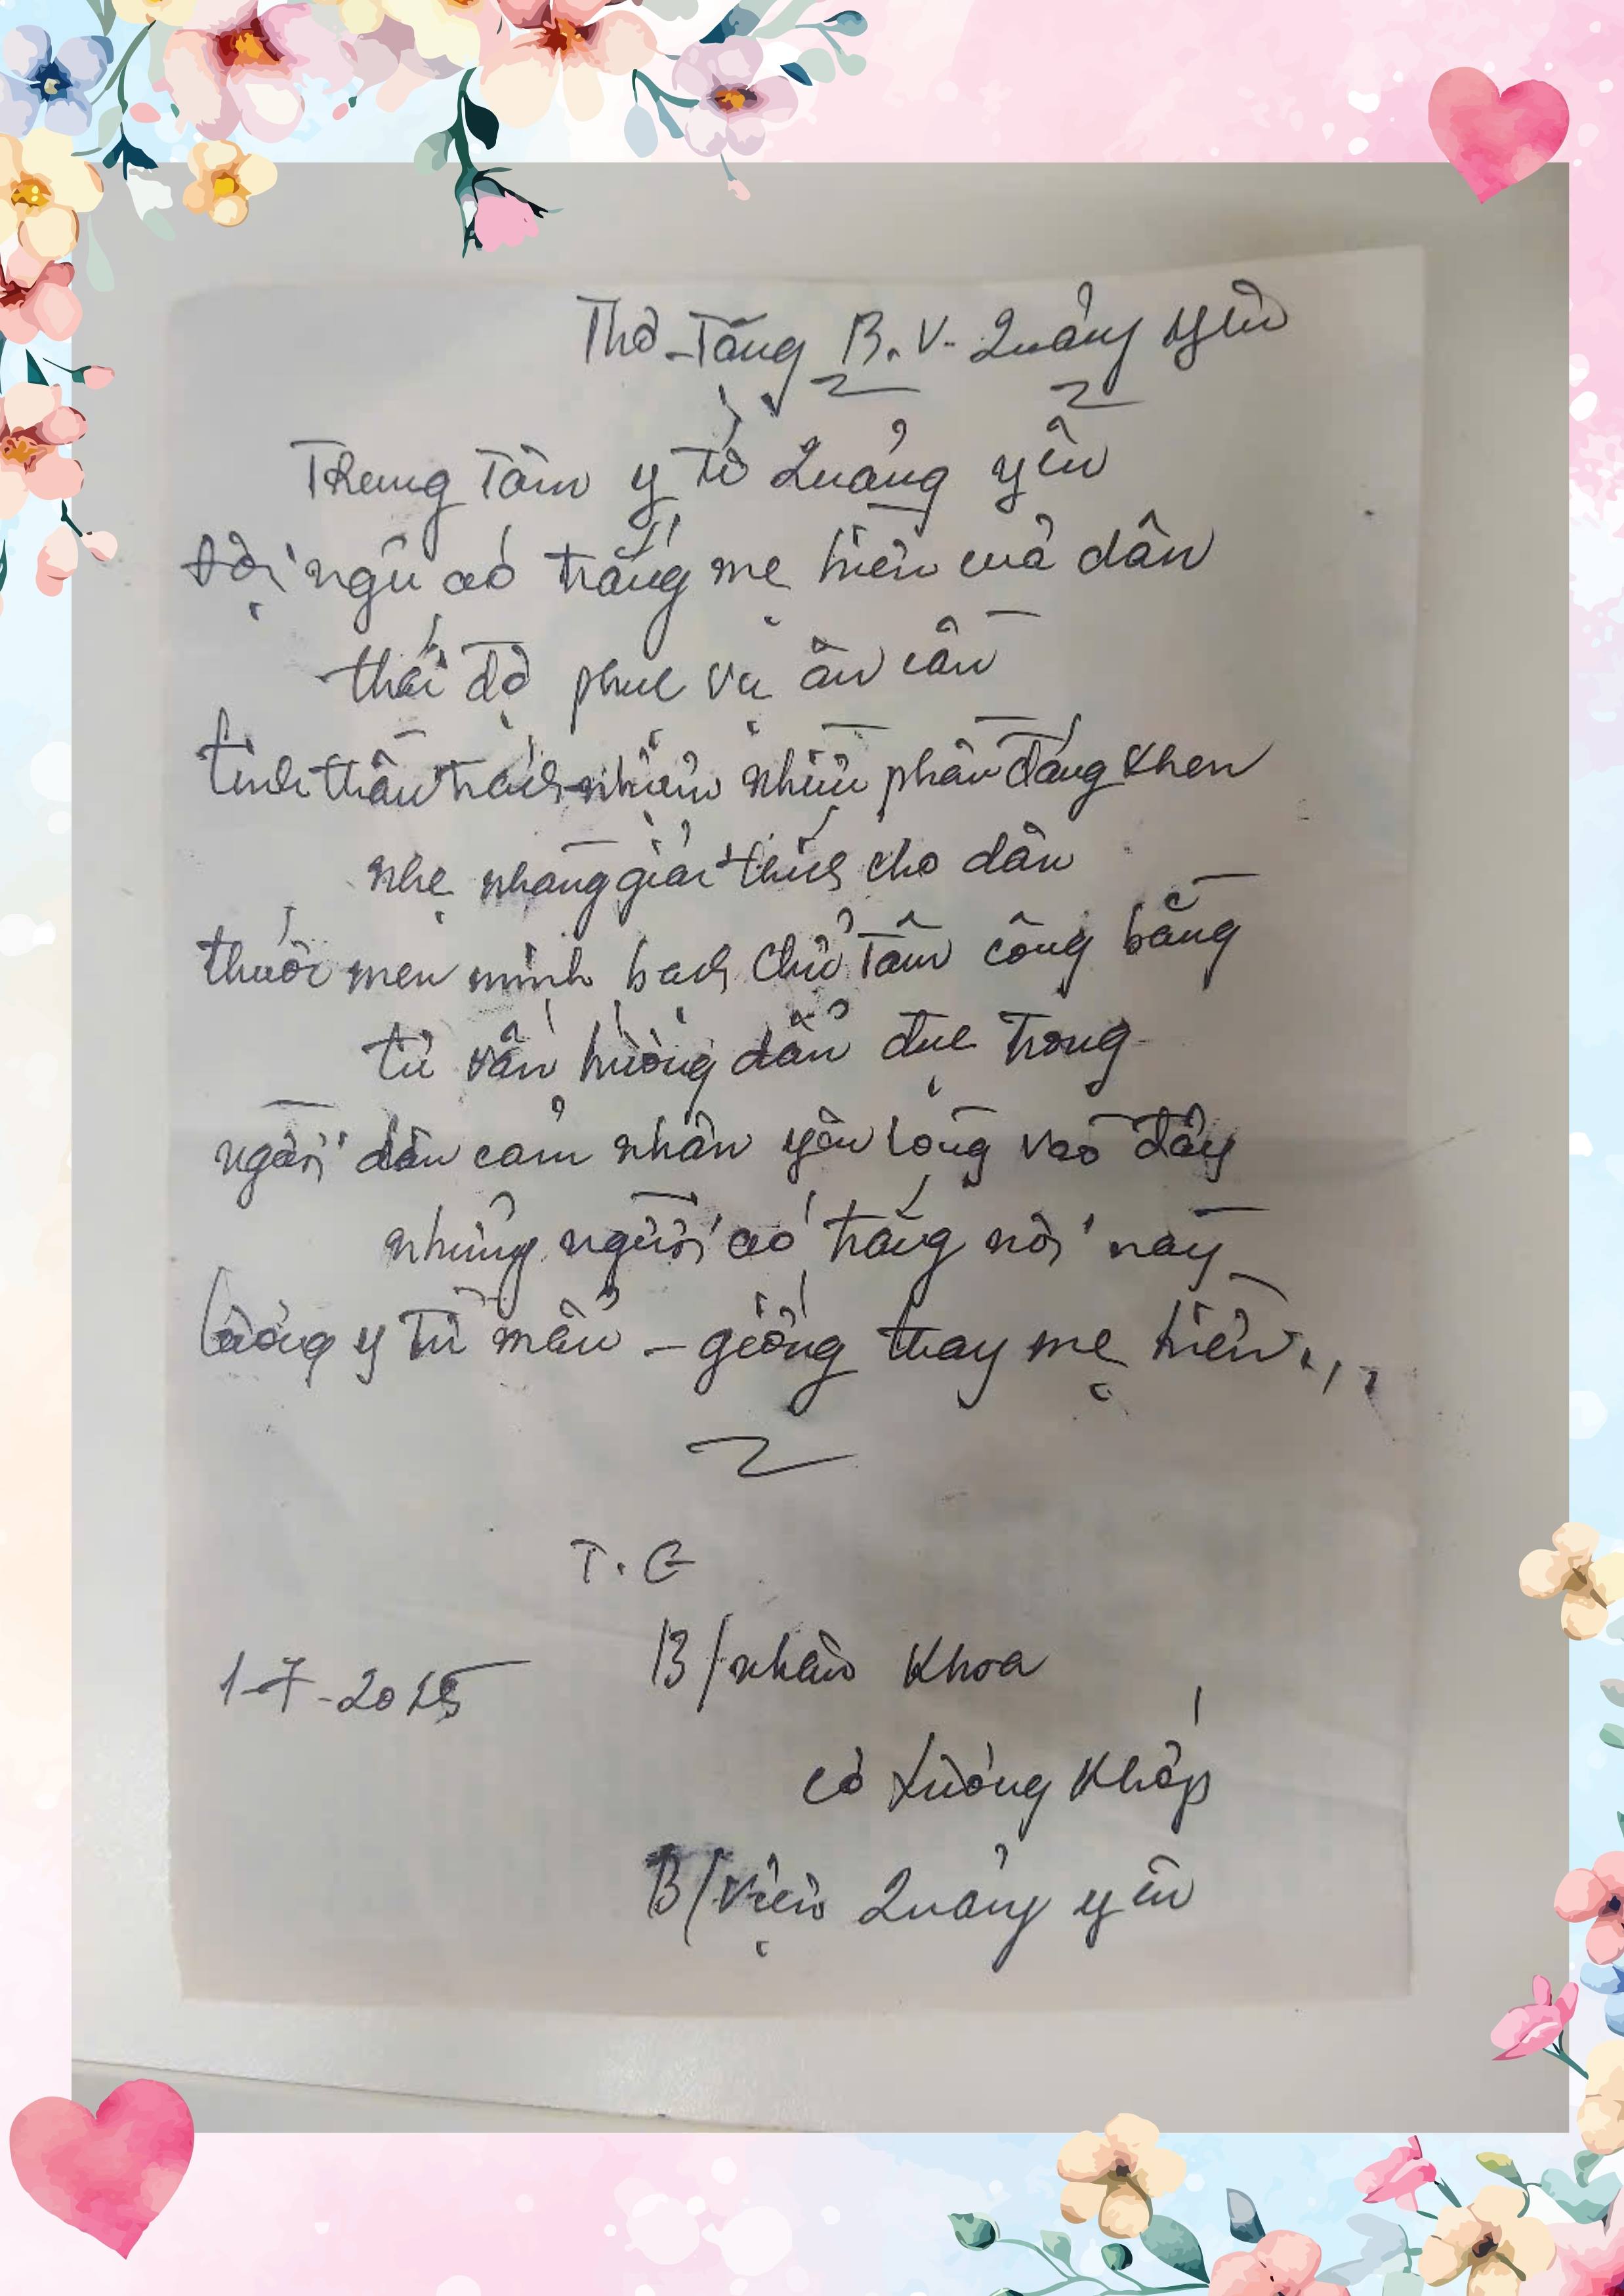 Thơ Tặng B.V. Quảng Yên
Trung Tâm y tế Quảng yên
Đội ngũ áo trắng mẹ hiền của dân
thái độ phục vụ ân cần
tinh thần trách nhiệm nhiều phần đáng khen
nhẹ nhàng giải thích cho dân
thuốc men minh bạch chữ Tâm công bằng
tư vấn hướng dẫn đục Trong
người dân cảm nhận yên lòng vào đây
những người áo trắng nơi này
lương y Từ mẫu - giống thay mẹ hiền...
T.G
B/nhân Khoa
1-7-2025
cơ xương khớp
B/viện Quảng yên